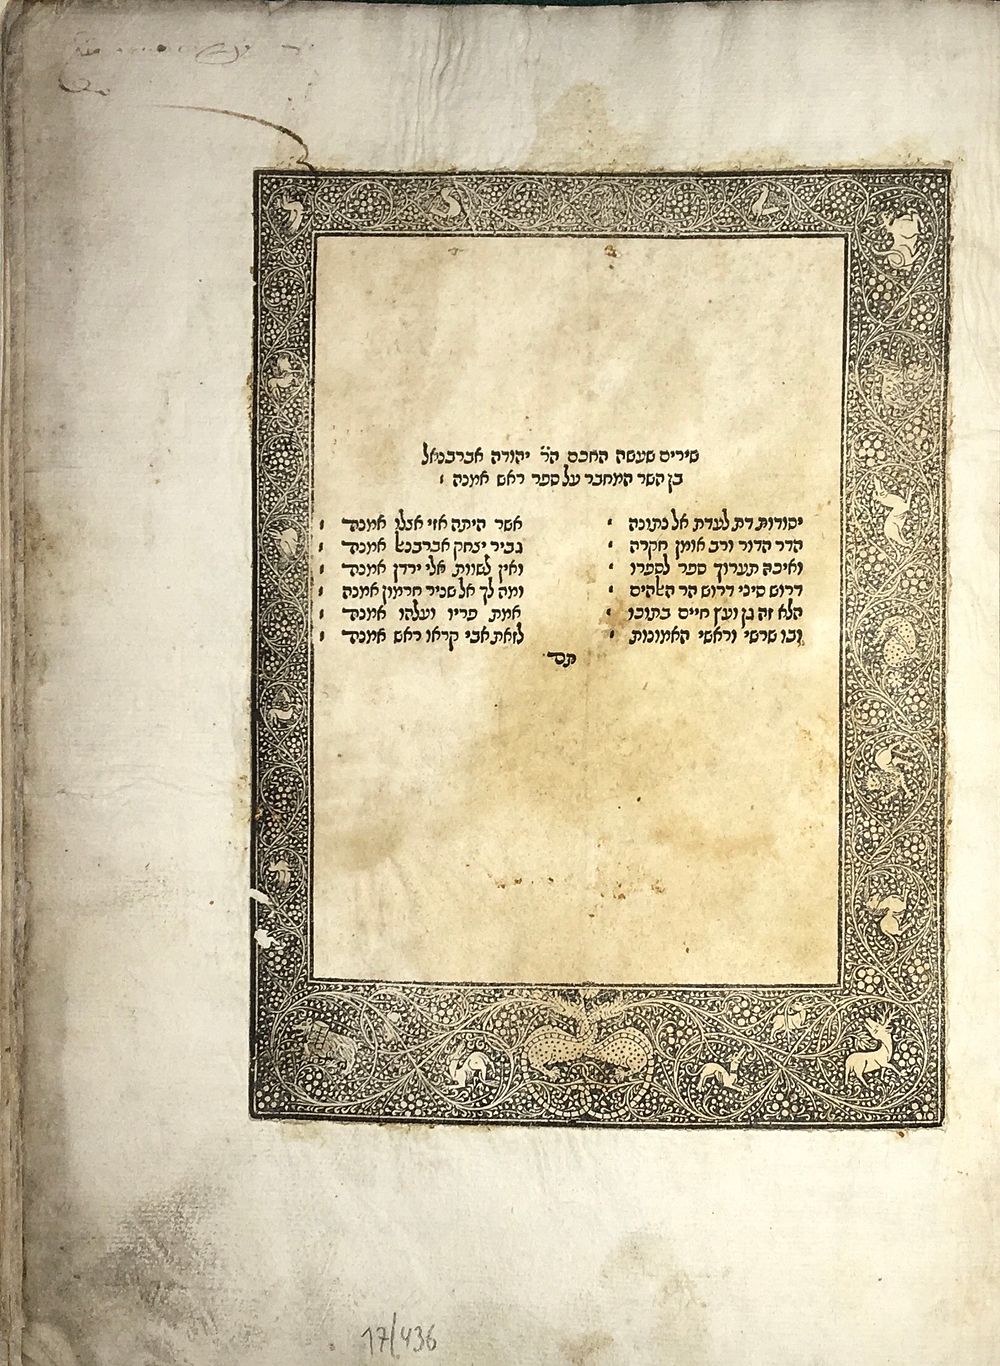 שירים שעשה החכם הר׳ יהודה אברבנאל
בן השר המחבר על ספר ראש אמנה
יסודות דת לעדת אל נתונה אשר היתה אזי אצלו אמנה
הדר הדור ורב אומן חקרה גביר יצחק אברבנאל אמנה
ואיכה תערוך ספר לספרו ואין לשוות אלי ירדן אמנה
דרוש סיני דרוש הר האלהים ומה לך אל שניר חרמון אמנה
הלא זה גן ועץ חיים בתוכו אמת פריו ועלהו אמנה
ובו שרשי וראשי האמונות לזאת אבי קראו ראש אמנה
תם
17/436